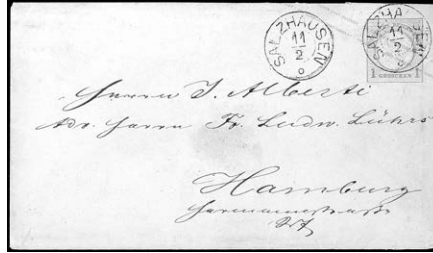 SALZHAUSEN
11
2
SALZHAUSEN
11
2
1 GROSCHEN 1
Herrn J. Alberti
Adr. Herrn Fr. Ludw. Lührs
Hamburg
Hermannstrasse